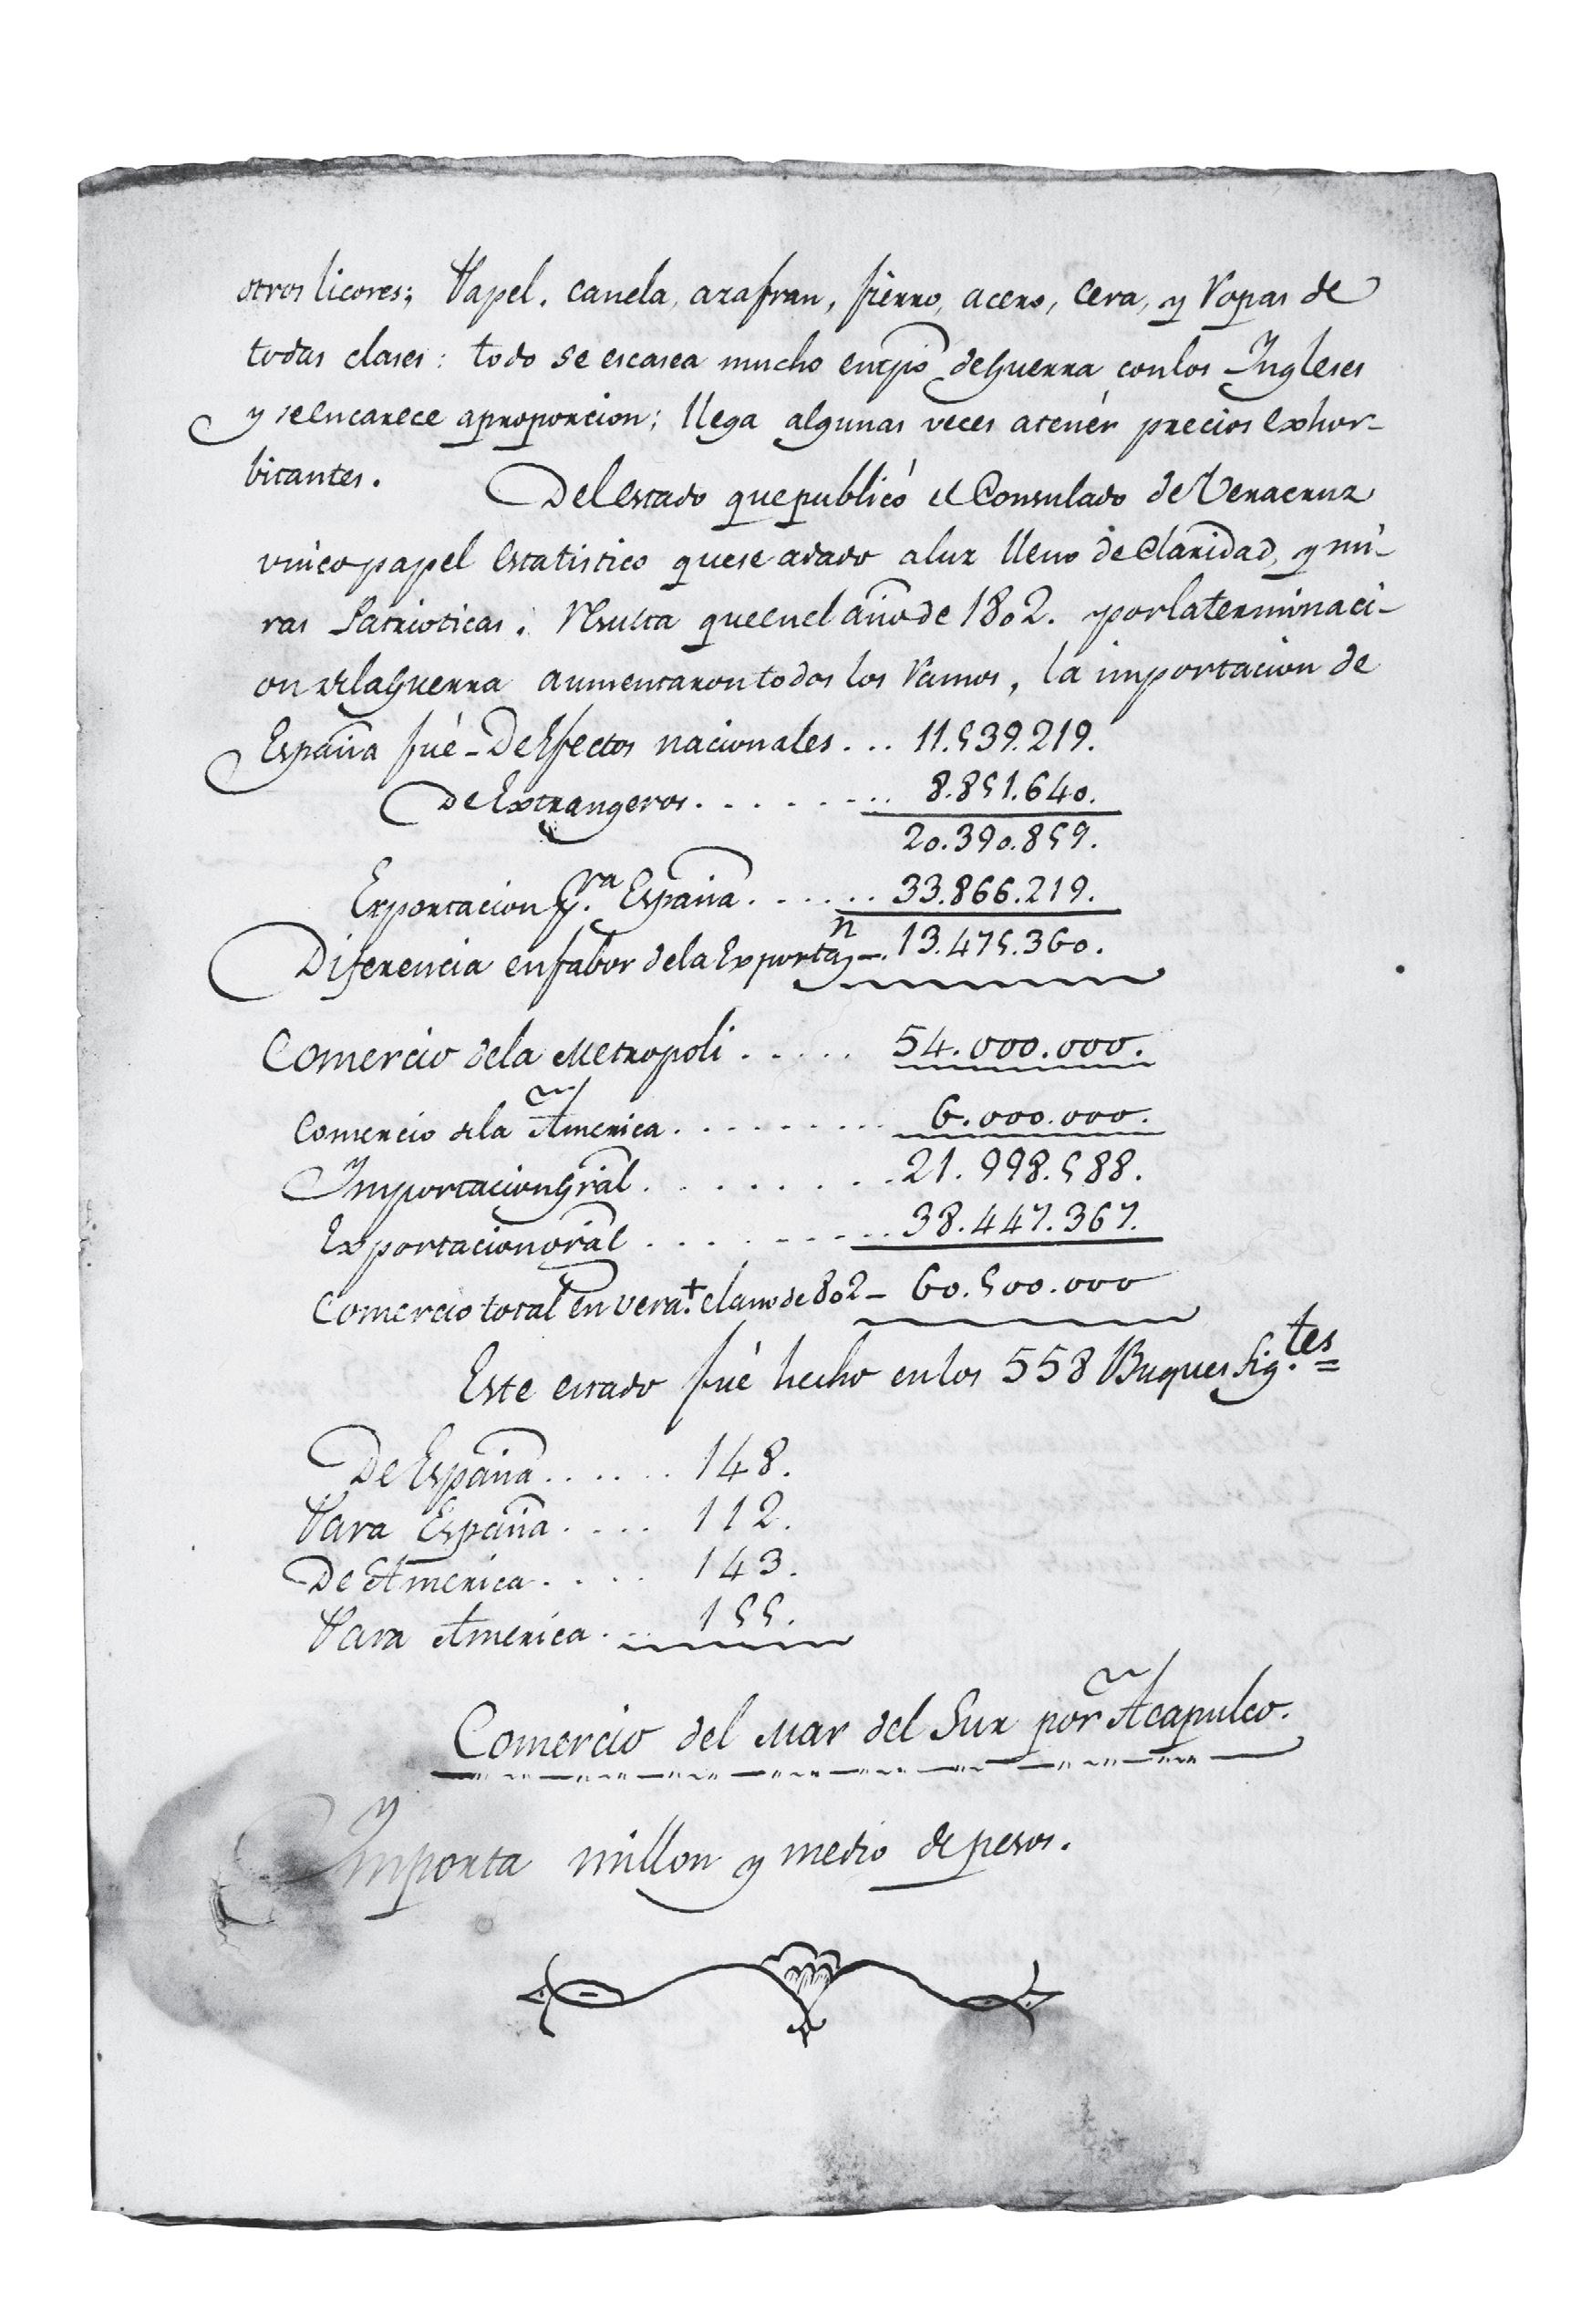 otros licores; Papel, canela, azafran, fierro, acero, cera, y Ropas de
todas clases: todo se escasea mucho entpõ de guerra con los Ingleses
y se encarece a proporcion; llega algunas veces a tenér precios exhor-
bitantes. Del estado que publicó el Consulado de Veracruz
unico papel estatistico que se a dado a luz lleno de claridad, y mi-
ras Patrioticas. Resulta que en el año de 1802. y por la terminaci-
on de la guerra aumentaron todos los Ramos, la importacion de
España fué - De efectos nacionales ... 11.539.219.
De Extrangeros. . . . . . . . . . 8.851.640.
20.390.859.
Exportacion p.ra España. . . . . . . 33.866.219.
Diferencia en fabor de la Exportan - . 13.475.360.
Comercio de la Metropoli . . . . . 54.000.000.
Comercio de la America . . . . . . . . . 6.000.000.
Importacion Gral . . . . . . . . . 21.998.588.
Exportacion gral . . . . . . . . . . 38.447.367.
Comercio total en Vera.+ el año de 802 - 60.500.000
Este estado fué hecho en los 558 Buques sig.tes =
De España . . . . . . 148.
Para España . . . . 112.
De America . . . . 143.
Para America . . . 155.
Comercio del Mar del Sur por Acapulco.
Importa millon y medio de pesos.